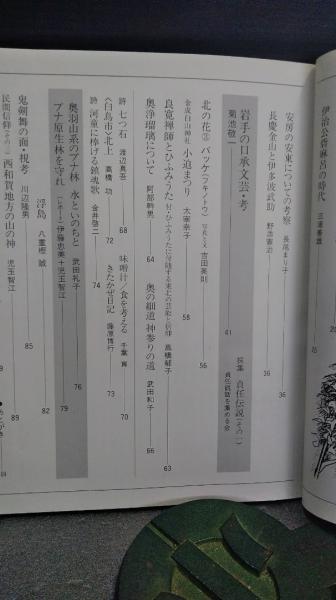 伊治公呰麻呂の時代 三浦
安房の安東についての考察 長尾まり子 36
長慶金山と伊多波武助 野添憲治 36
岩手の口承文芸・考
菊池敬一 41
採集 貞任伝説(その一)
貞任伝説を集める会
北の花③ バッケ(フキノトウ) 写真と文 吉田英則 56
金成白山神社 小迫まつり 太宰幸子 58
良寛禅師とひふみうた 付・ひふみうたに反映する東北の芸能と信仰 高橋輔子 63
奥浄瑠璃について 阿部幹男 64
奥の細道 神参りの道 武田和子 66
詩 七つ石 渡辺真吾 68
味噌汁/食を考える 千葉 70
〈白鳥市〉北上 高橋功 72
きたかぜ日記 藤原博行 73
詩 河童に捧げる鎮魂歌 金井敬二 74
奥羽山系のブナ林 水といのちと 武田礼子 76
ブナ原生林を守れ 伊藤忠美+児玉智江 79
浮島 八重樫誠 82
鬼剣舞の面・視考 川辺隆男 85
民間信仰(その二) 西和賀地方の山の神 児玉智江 89